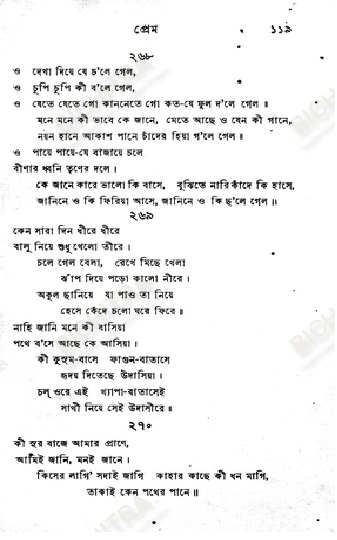 প্রেম ১১৯
২৬৮
ও দেখা দিয়ে যে চ'লে গেল,
ও চুপি চুপি কী ব'লে গেল,
ও যেতে যেতে গো কাননেতে গো কত-যে ফুল দ'লে গেল॥
মনে মনে কী ভাবে কে জানে, মেতে আছে ও যেন কী গানে,
নয়ন হানে আকাশ পানে চাঁদের হিয়া গ'লে গেল॥
ও পায়ে পায়ে-যে বাজায়ে চলে
বীণার ধ্বনি তৃণের দলে।
কে জানে কারে ভালো কি বাসে, বুঝিতে নারি কাঁদে কি হাসে,
জানিনে ও কি ফিরিয়া আসে, জানিনে ও কি ছ'লে গেল॥
২৬৯
কেন সারা দিন ধীরে ধীরে
বালু নিয়ে শুধু খেলো তীরে।
চলে গেল বেলা, রেখে মিছে খেলা
ঝাঁপ দিয়ে পড়ো কালো নীরে।
অকূল ছানিয়ে যা পাও তা নিয়ে
হেসে কেঁদে চলো ঘরে ফিরে॥
নাহি জানি মনে কী বাসিয়া
পথে ব'সে আছে কে আসিয়া।
কী কুসুম-বাসে ফাগুন-বাতাসে
হৃদয় দিতেছে উদাসিয়া।
চল্ ওরে এই খ্যাপা-বাতাসেই
সাথী নিয়ে সেই উদাসীরে॥
২৭০
কী সুর বাজে আমার প্রাণে,
আমিই জানি, মনই জানে।
কিসের লাগি' সদাই জাগি কাহার কাছে কী ধন মাগি,
তাকাই কেন পথের পানে॥